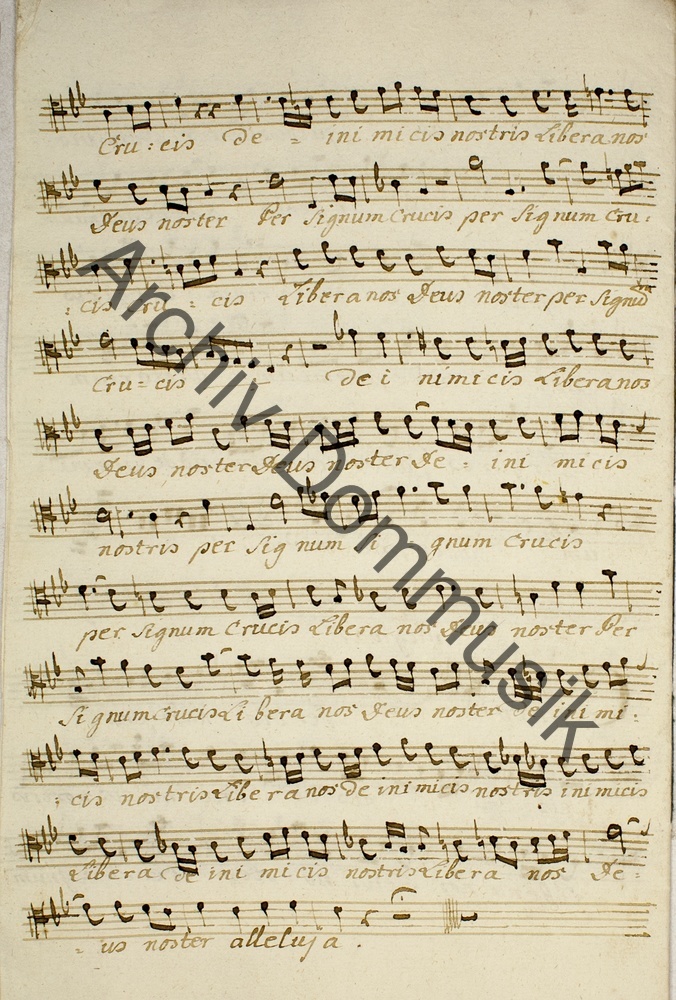 Cru: cis de = ini mi cis nostris Libera nos
Deus noster Per Signum Crucis per Signum Cru:
: cis Cru = cis Libera nos Deus noster per Signum
Cru = cis de i nimicis Libera nos
Deus noster Deus noster De = ini micis
nostris per Sig num Si = gnum Crucis
per Signum Crucis Libera nos Deus noster Per
Signum Crucis Libera nos Deus noster de ini mi:
: cis nostris Libera nos de inimicis nostris inimicis
Libera de ini micis nostris Libera nos De:
= us noster alleluja.
Archiv Dommusik